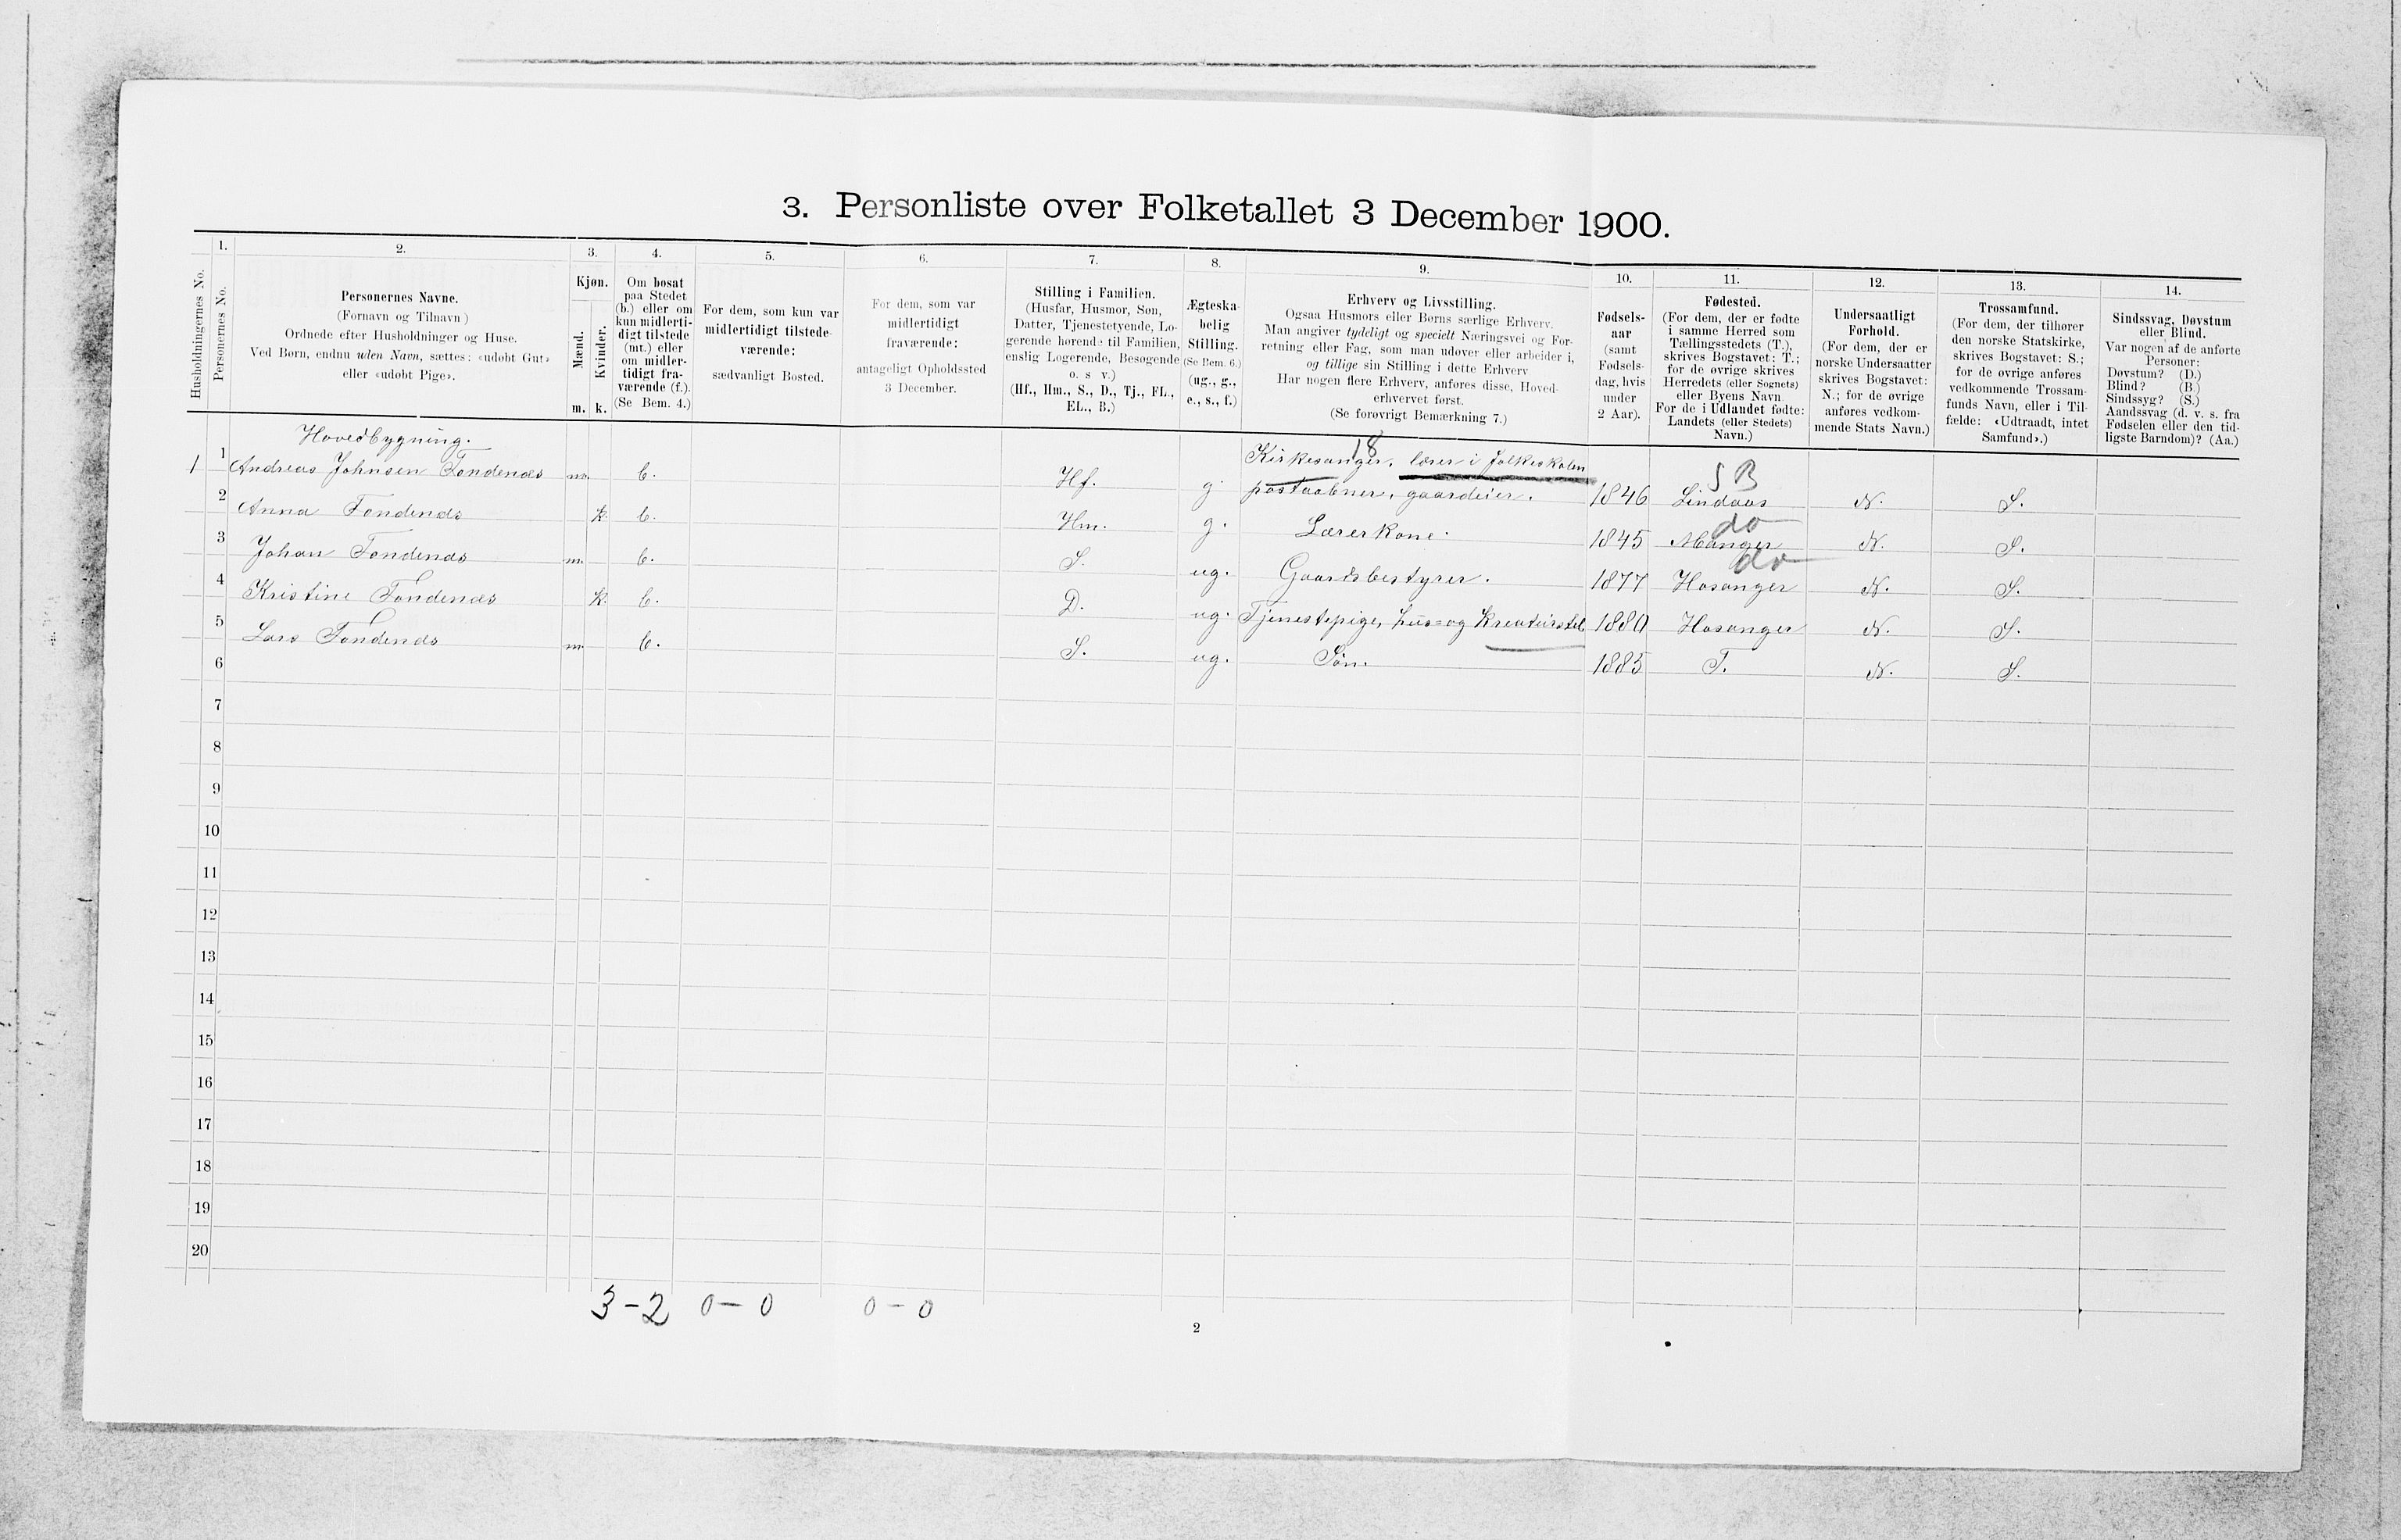 3. Personliste over Folketallet 3 December 1900.
Husholdningernes No.
1.
Personernes No.
2.
Personernes Navne.
(Fornavn og Tilnavn)
Ordnede efter Husholdninger og Huse.
Ved Børn, endnu uden Navn, sættes: «udøbt Gut»
eller «udøbt Pige».
3.
Kjøn.
Mænd.
Kvinder.
m. k.
4.
Om bosat
paa Stedet
(b.) eller om
kun midlerti-
digt tilstede
(mt.) eller
om midler-
tidigt fra-
værende (f.).
(Se Bem. 4.)
5.
For dem, som kun var
midlertidigt tilstede-
værende:
sædvanligt Bosted.
6.
For dem, som var
midlertidigt
fraværende:
antageligt Opholdssted
3 December.
7.
Stilling i Familien.
(Husfar, Husmor, Søn,
Datter, Tjenestetyende, Lo-
gerende hørende til Familien,
enslig Logerende, Besøgende
o. s v.)
(Hf., Hm., S., D., Tj., FL.,
EL., B.)
8.
Ægteska-
belig
Stilling.
(Se Bem. 6.)
(ug., g.,
e., s., f.)
9.
Erhverv og Livsstilling.
Ogsaa Husmors eller Børns særlige Erhverv.
Man angiver tydeligt og specielt Næringsvei og For-
retning eller Fag, som man udøver eller arbeider i,
og tillige sin Stilling i dette Erhverv
Har nogen flere Erhverv, anføres disse, Hoved-
erhvervet først.
(Se forøvrigt Bemærkning 7.)
10.
Fødsels-
aar
(samt
Fødsels-
dag, hvis
under
2 Aar).
11.
Fødested.
(For dem, der er fødte
i samme Herred som
Tællingsstedets (T.),
skrives Bogstavet: T.;
for de øvrige skrives
Herredets (eller Sognets)
eller Byens Navn.
For de i Udlandet fødte:
Landets (eller Stedets)
Navn.)
12.
Undersaatligt
Forhold.
(For dem, der er
norske Undersaatter
skrives Bogstavet:
N.; for de øvrige
anføres vedkom-
mende Stats Navn.)
13.
Trossamfund.
(For dem, der tilhører
den norske Statskirke,
skrives Bogstavet: S.;
for de øvrige anføres
vedkommende Trossam-
funds Navn, eller i Til-
fælde: «Udtraadt, intet
Samfund».)
14.
Sindssvag, Døvstum
eller Blind.
Var nogen af de anførte
Personer:
Døvstum? (D.)
Blind? (B.)
Sindssyg? (S.)
Aandssvag (d. v. s. fra
Fødselen eller den tid-
ligste Barndom)? (Aa.)
Hovedbygning.
18
Kirkesanger, lærer i folkeskolen
S B
1 1 Andreas Johnsen Tondenæs m. b. Hf. g. postaabner, gaardeier. 1846 Lindaas N. S.
do
2 Anna Tondenæs k. b. Hm. g. Lærerkone. 1845 Manger N. S.
do
3 Johan Tondenæs m. b. S. ug. Gaardsbestyrer. 1877 Hosanger N. S.
4 Kristine Tondenæs k. b. D. ug. Tjenestepige, hus- og kreaturstel 1880 Hosanger N. S.
5 Lars Tondenæs m. b. S. ug. Søn. 1885 T. N. S.
6
7
8
9
10
11
12
13
14
15
16
17
18
19
20
3-2 0-0 0-0
2